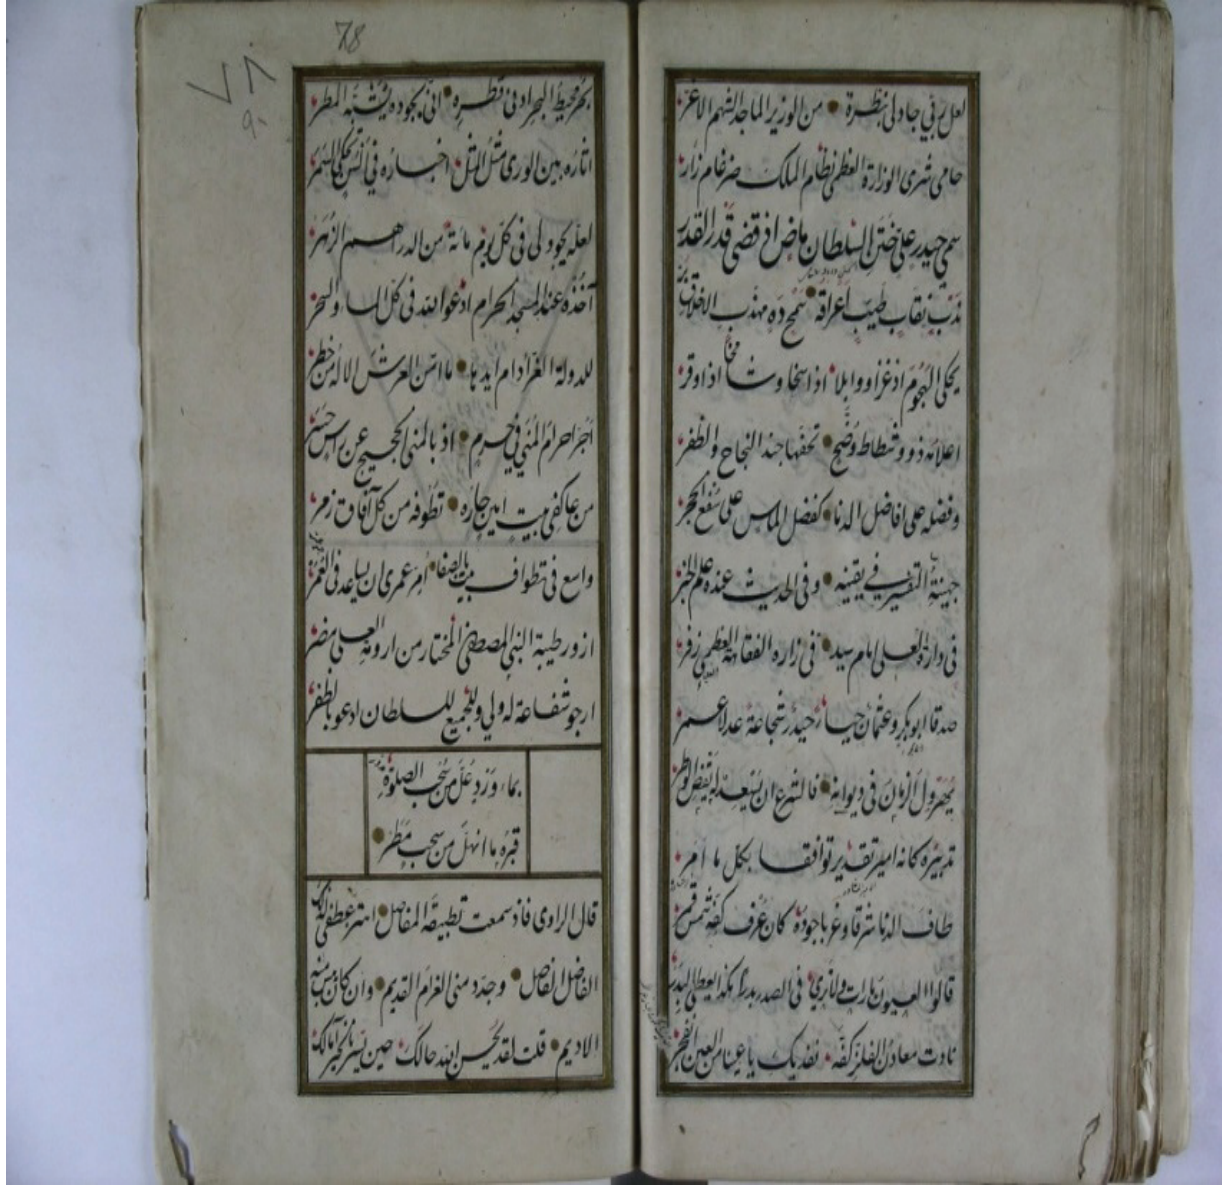 لعل ربي جاد لي بنظرة من الوزير الماجد الشهم الاغر
حامي شرى الوزارة العظمى نظام الملك ضرغام زأر
سمي حيدر علي ختن السلطان ماض اذ قضى قدر القدر
ندب نقاب طيب اعراقه سمح ده مهذب الاخلاق
يحكي الهجوم اذ غزا ووابلا اذا سخا وشامخا اذا وقر
اعلامه ذو وشطاط وضح تحفها جند النجاح والظفر
وفضله على افاضل الدنا كفضل الماس على سفع الحجر
جهينة التفسير في يقينه وفي الحديث عنده علم الخبر
في دارة العلى امام سيد في زاره الفقاهة العظمى زفر
صدقا ابو بكر وعثمان حيا حيدر شجاعة عدلا عمر
يهرول الزمان في ديوانه فالشرع ان يستعد له يقض الوطر
تدبيره كانه امير تقدير توافقا بكل ما امر
طاف الدنا شرقا وغربا جوده كان عرف كفه شمس قمر
قالوا العيون بارات ولا نرى في الصدر بدرا بكفه العطى البدر
ناوت معادن الفلز كفه نفديك يا عينا من العين انفجر
78
٧٨
٩٠
بحر محيط البحر ادنى قطره انى بجوده يشبه المطر
اثاره بين الورى مثل المثل اخباره في انس تحكي السمر
لعله يجود لي في كل يوم مائة من الدراهم الزهر
آخذه عند المسجد الحرام ادعو الله في كل المسا والسحر
للدولة الغرا دام ايدها ما امن العرش الاله من خطر
اجر احرام المنى في حرم اذ بالمنى الحجيج عن رأس حسر
من عاكفي بيت امين جاره تطوفه من كل آفاق زمر
واسع في تطواف بيت بالصفا ام عمري ان يساعد في العمر
ازور طيبة النبي المصطفى المختار من ارومة العلى مضر
ارجو شفاعة له ولي وللجميع للسلطان ادعو بالظفر
بماء ورد عل من سحب الصلوة
قبره ما انهل من سحب مطر
قال الراوي فاذ سمعت تطبيقه المفاصل اهتز عطفي لذلك
الفاضل الفاصل وجدد مني الغرام القديم وان كان من منبه
الاديم قلت لقد يحسن الله حالك حين تيسر بالخير آمالك